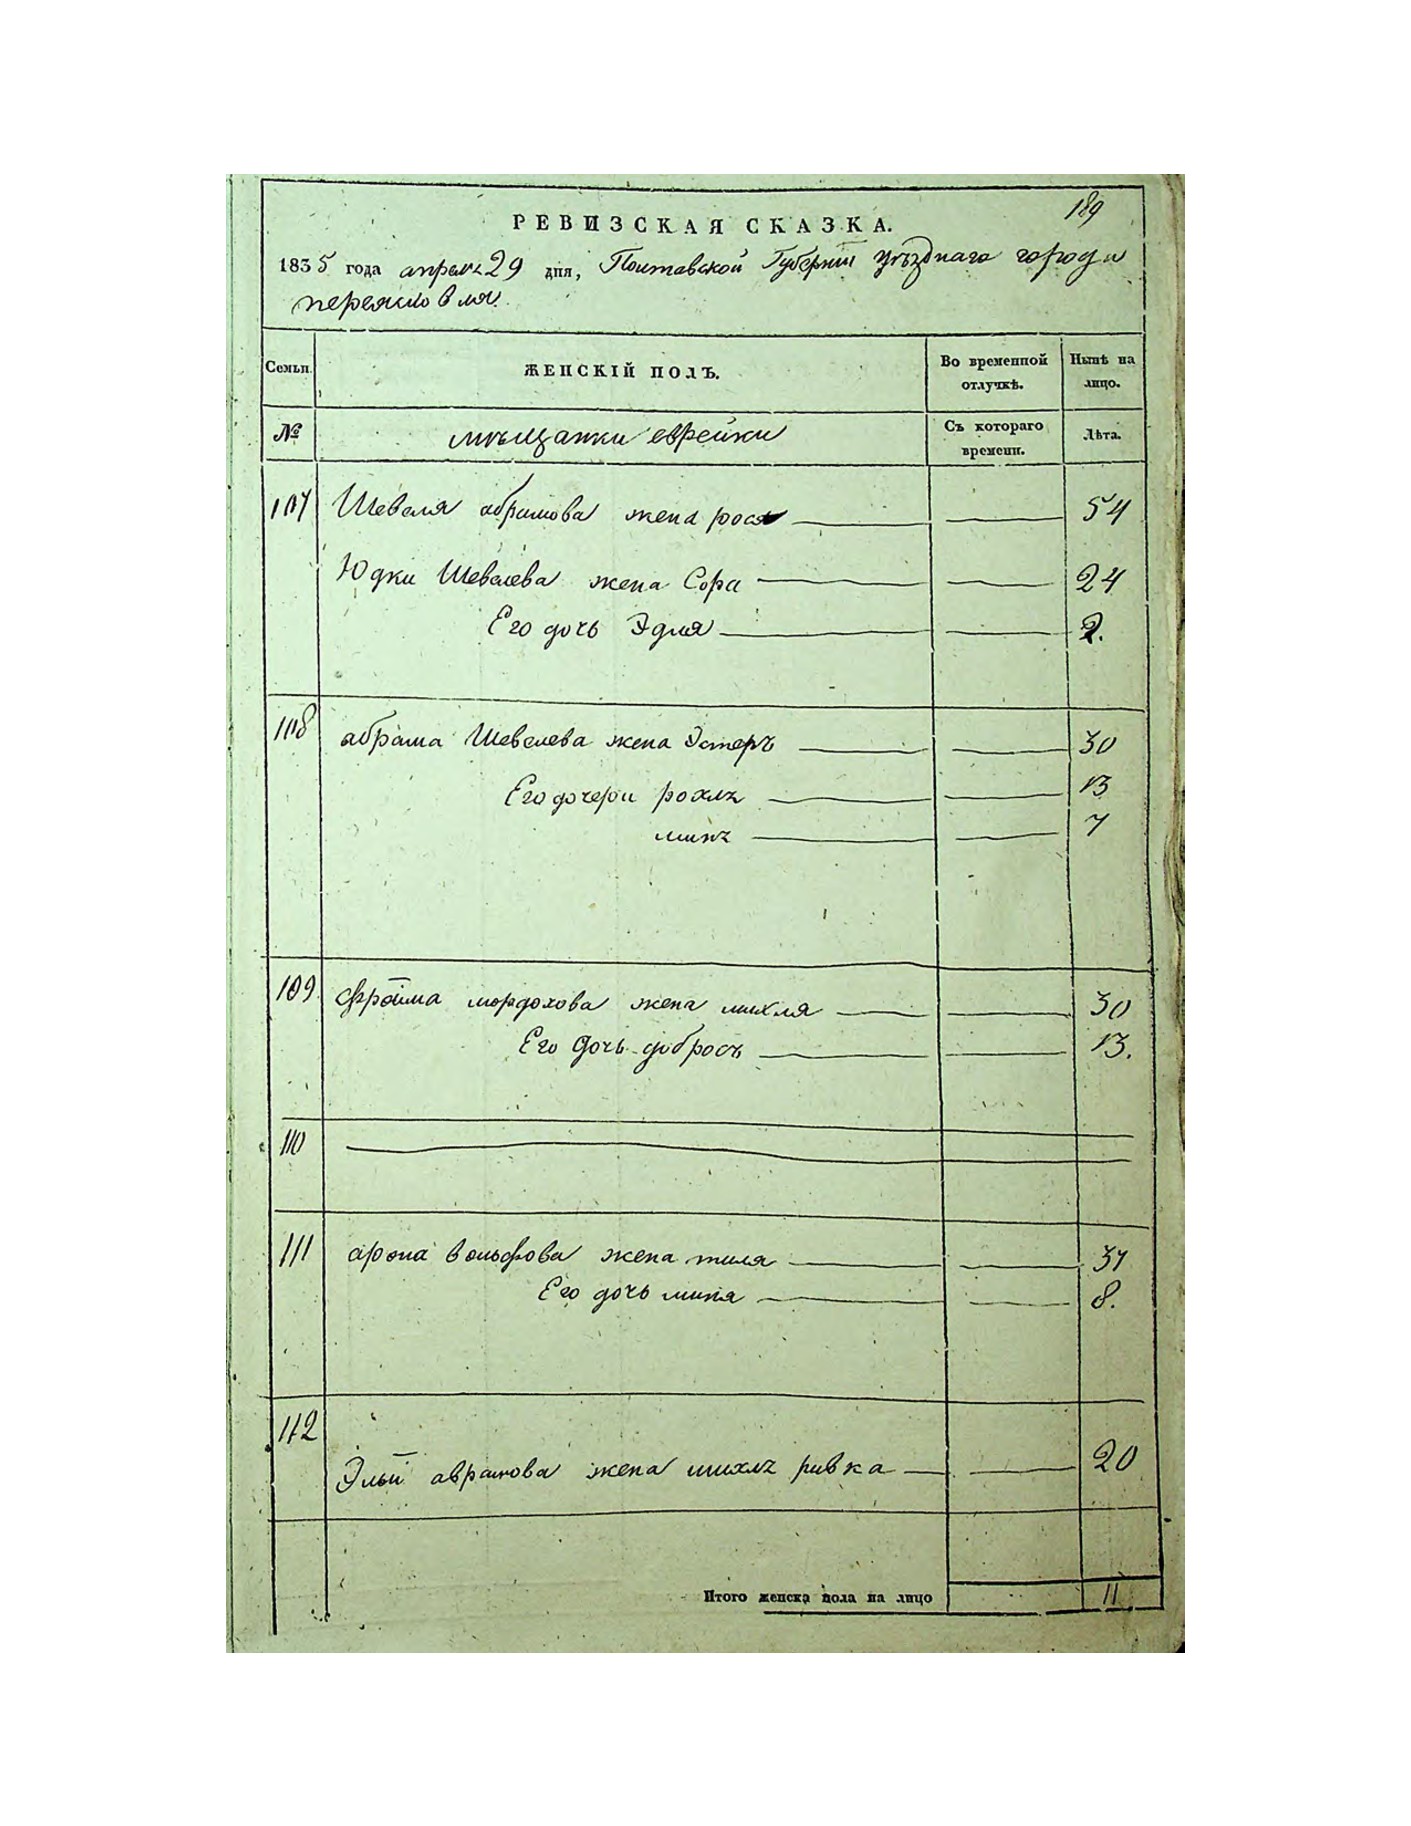 189
РЕВИЗСКАЯ СКАЗКА.
1835 года апреля 29 дня, Полтавской Губернїи уѣзднаго города
переяславля.
Семьи.
ЖЕНСКІЙ ПОЛЪ.
Во временной отлучкѣ.
Нынѣ на лицо.
№
мѣщанки еврейки
Съ котораго времени.
Лѣта.
107 Шевеля абрамова жена рося 54
Юдки Шевелева жена Сора 24
Его дочь Эдля 2.
108 абрама Шевелева жена Эстеръ 30
Его дочери рохля 13
миня 7
109 фроїма мордохова жена михля 30
Его дочь добрось 13.
110
111 арона вольфова жена тиля 37
Его дочь миня 8.
112
Элїи аврамова жена михля ривка 20
Итого женска пола на лицо 11